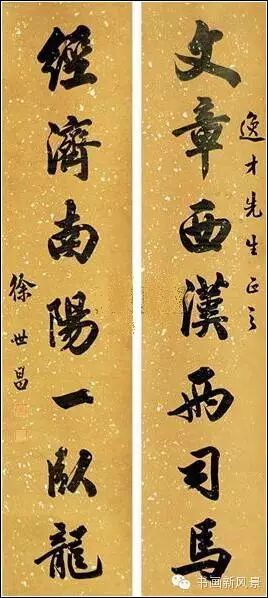 逸才先生正之
文章西漢兩司馬
經濟南陽一臥龍
徐世昌
书画新风景